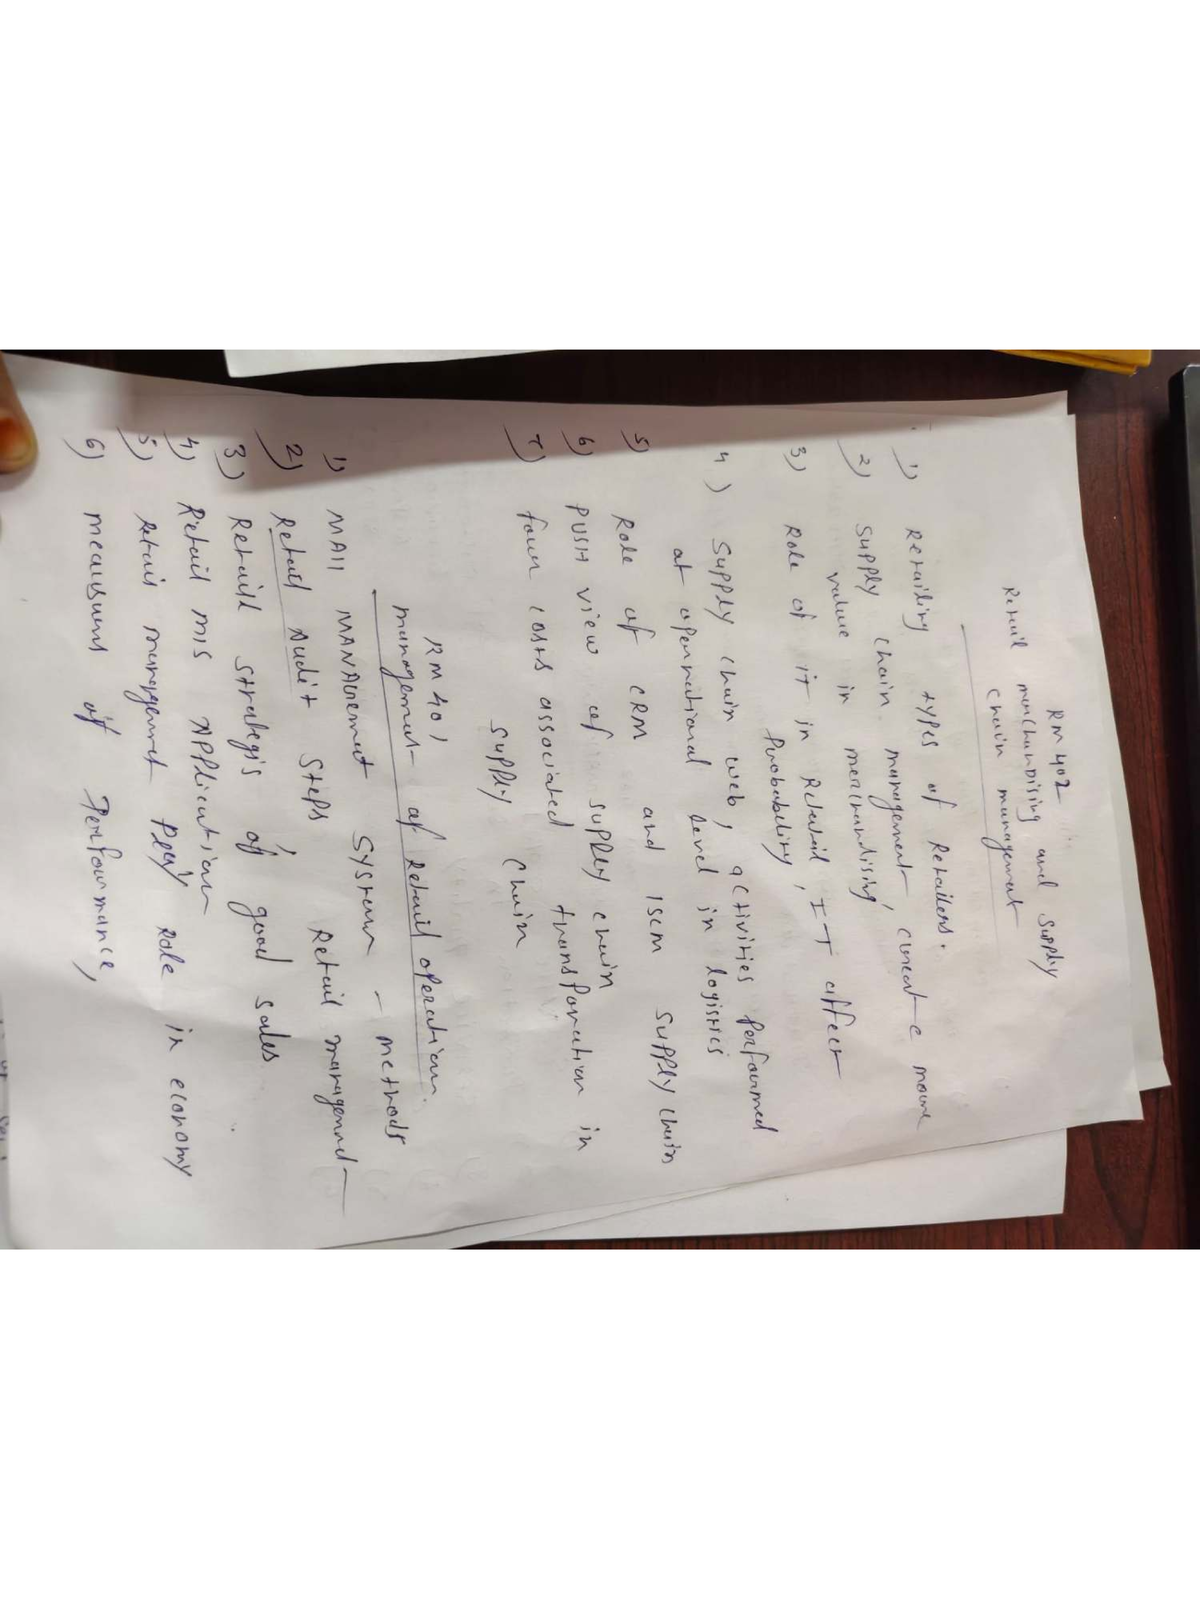 RM 402
Retail merchandising and supply
chain management
1) Retailing types of Retailers.
2) Supply chain management, create more
value in merchandising
3) Role of it in Retail, IT affect
Probability
4) Supply chain web, activities performed
at operational level in logistics
5) Role of CRM and ISCM supply chain
6) PUSH view of supply chain
7) four costs associated transportation in
supply chain
RM 401
management of retail operation.
1) MAll MANAGEMENT System - methods
2) Retail Audit Steps, Retail management
3) Retail strategis of good sales
4) Retail mis Application
5) Retail management play role in economy
6) measures of Performance,